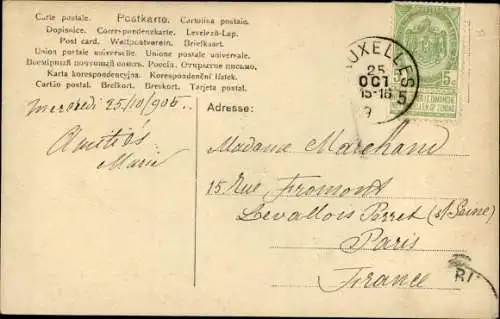 Carte postale. Postkarte. Cartolina postale.
Dopisnice. Correspondenzkarte. Levelező-Lap.
Post card. Weltpostverein. Briefkaart.
Union postale universelle. Unione postale universale.
Всемірный почтовый союзъ. Россія. Открытое письмо.
Karta korespondencyjna. Korespondenční lístek.
Cartão postal. Brefkort. Brevkort. Tarjeta postal.
Mercredi 25/10/906
Amitiés
Marie
Adresse:
Madame Marchand
15 Rue Fromont
Levallois Perret (s/ Seine)
Paris
France
UXELLES
25
OCT
15-16
5